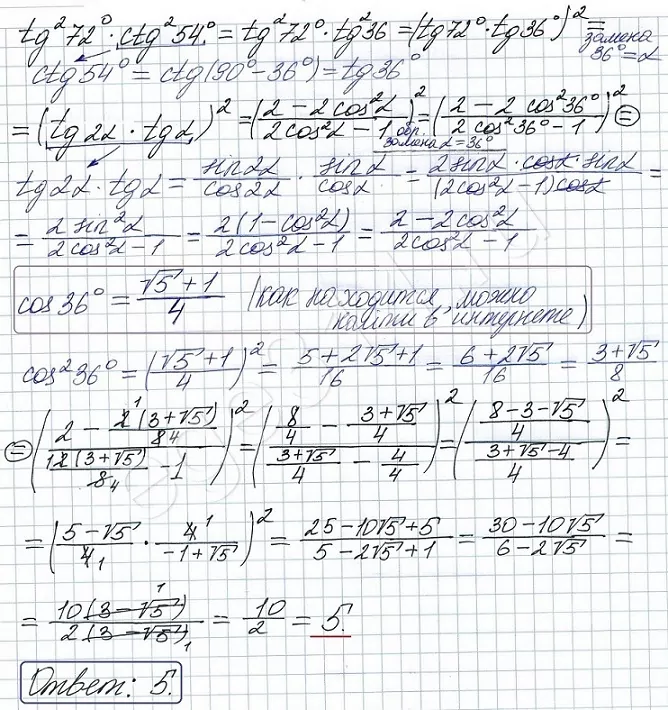 tg²72°·ctg²54° = tg²72°·tg²36 = (tg72°·tg36°)² =
замена 36°=α
ctg54° = ctg(90°-36°) = tg36°
= (tg2α·tgα)² = ((2-2cos²α)/(2cos²α-1))² = ((2-2cos²36°)/(2cos²36°-1))² ⊜
обр. замена α=36°
tg2α·tgα = sin2α/cos2α · sinα/cosα = (2sinα·cosα·sinα)/((2cos²α-1)cosα) =
= 2sin²α/(2cos²α-1) = 2(1-cos²α)/(2cos²α-1) = (2-2cos²α)/(2cos²α-1)
cos36° = (√5+1)/4 (как находится, можно
найти в интернете)
cos²36° = ((√5+1)/4)² = (5+2√5+1)/16 = (6+2√5)/16 = (3+√5)/8
⊜ ((2 - 2(3+√5)/8)/(2(3+√5)/8 - 1))² = ((8/4 - (3+√5)/4)/((3+√5)/4 - 4/4))² = (((8-3-√5)/4)/((3+√5-4)/4))² =
= ((5-√5)/4 · 4/(-1+√5))² = (25-10√5+5)/(5-2√5+1) = (30-10√5)/(6-2√5) =
= 10(3-√5)/2(3-√5) = 10/2 = 5.
Ответ: 5.